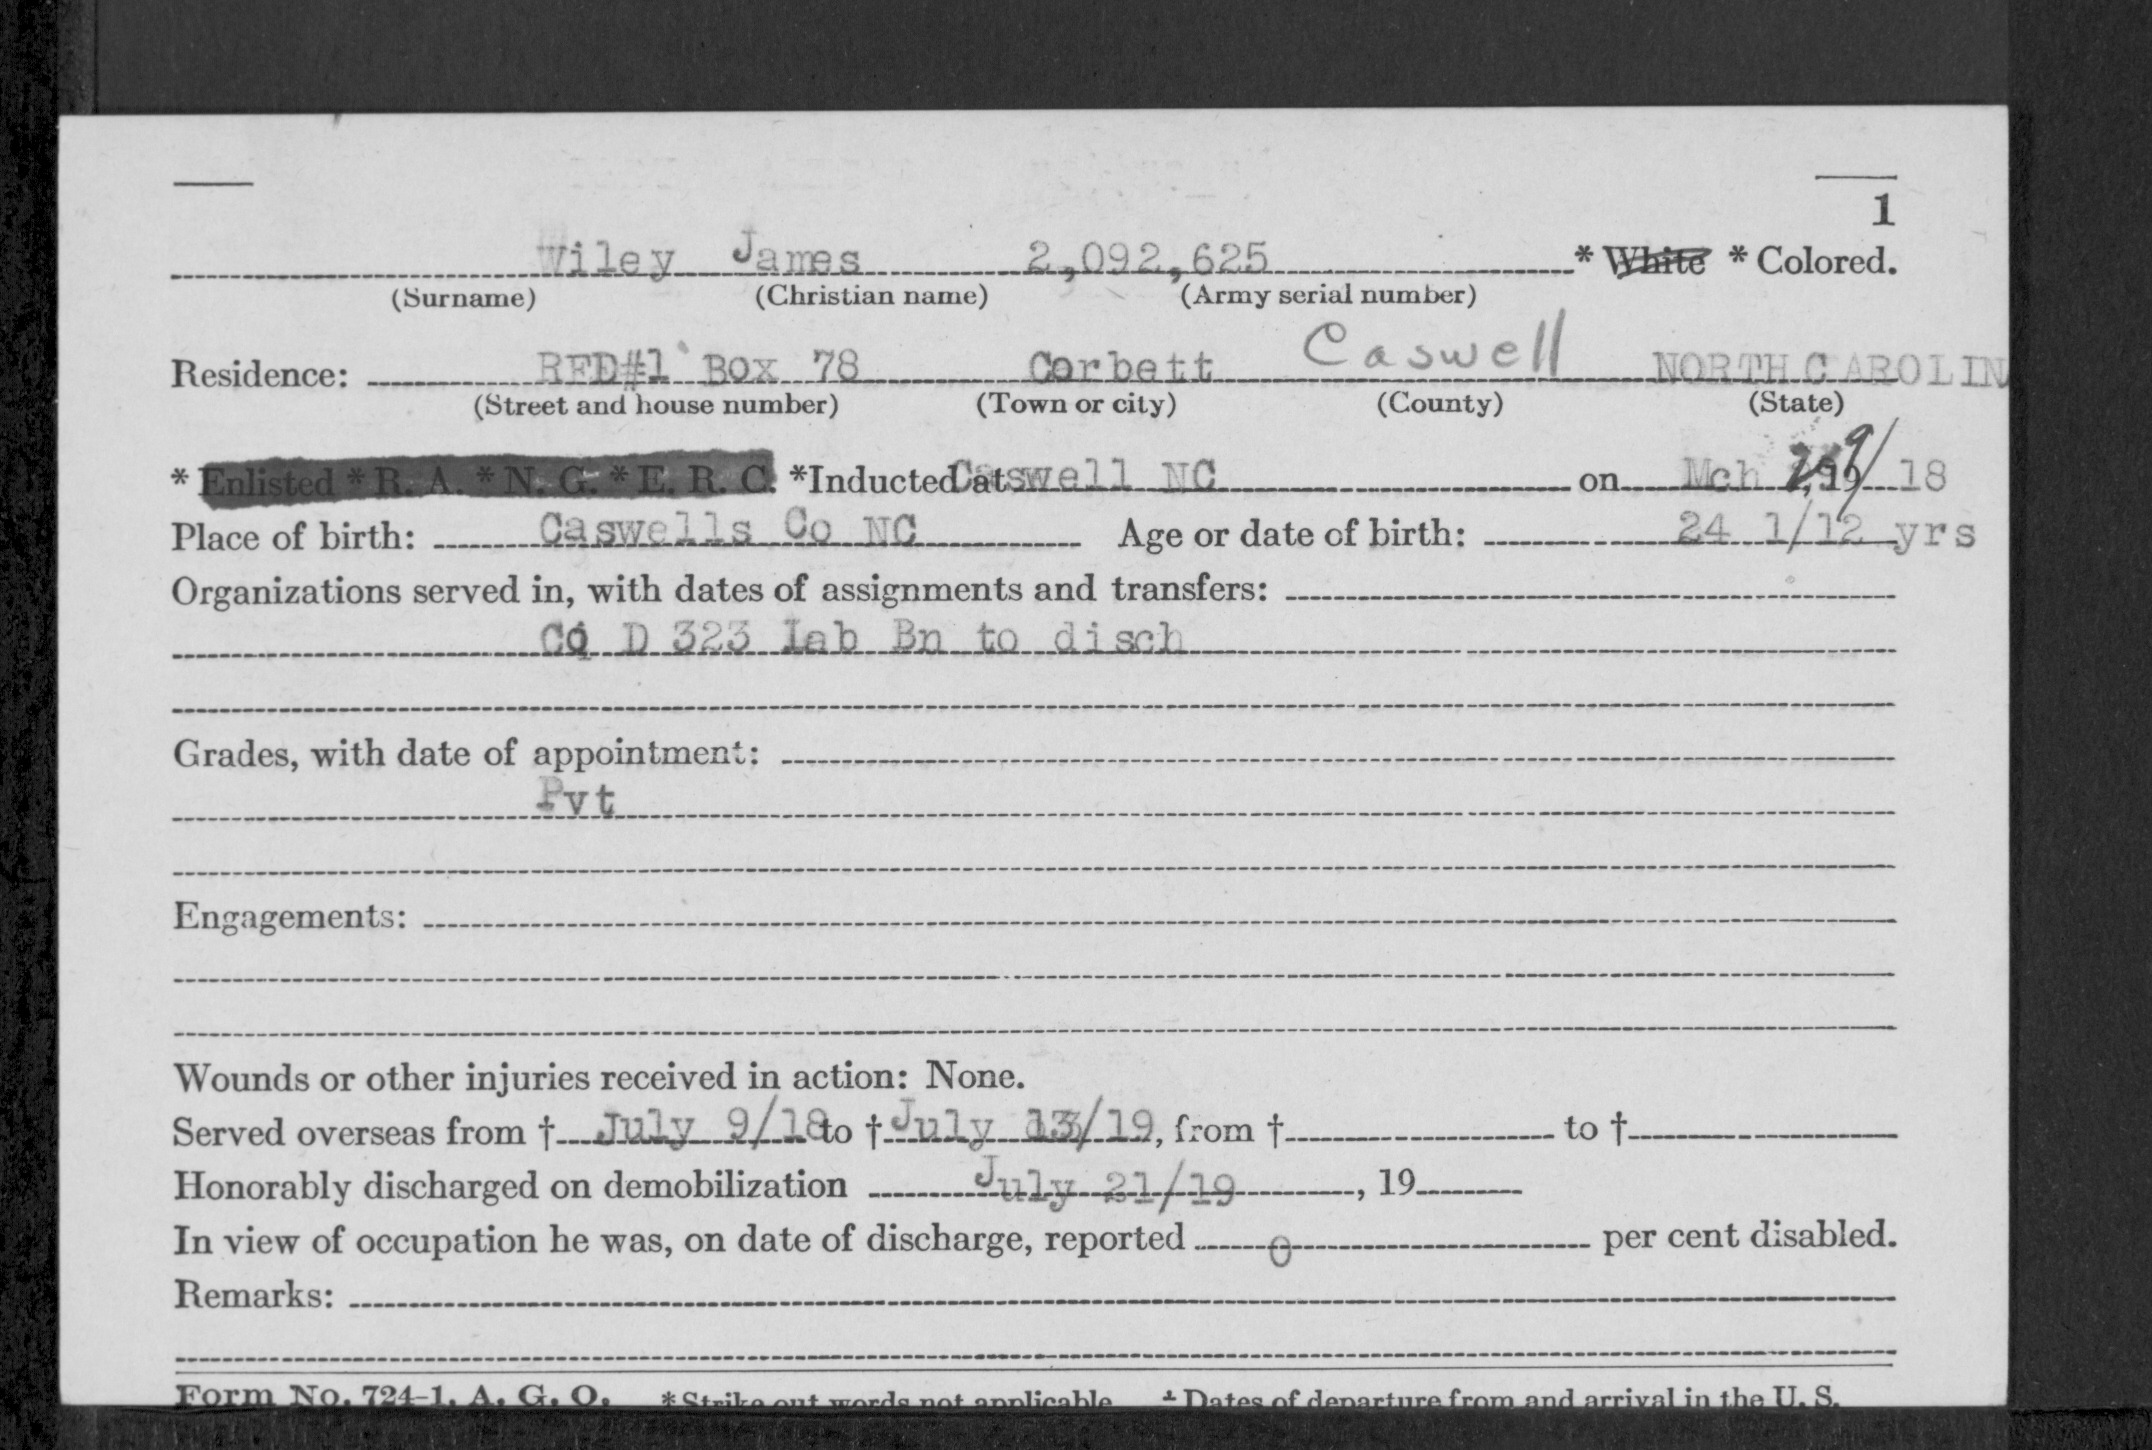 1
Wiley James 2,092,625 * White * Colored.
(Surname) (Christian name) (Army serial number)
Residence: RFD#1 Box 78 Corbett Caswell NORTH CAROLIN
(Street and house number) (Town or city) (County) (State)
* Enlisted * R. A. * N. G. * E. R. C. *Inducted at Caswell NC on Mch , 19 18
Place of birth: Caswells Co NC Age or date of birth: 24 1/12 yrs
Organizations served in, with dates of assignments and transfers:
Co D 323 Lab Bn to disch
Grades, with date of appointment:
Pvt
Engagements:
Wounds or other injuries received in action: None.
Served overseas from † July 9/18 to † July 13/19, from † to †
Honorably discharged on demobilization July 21/19, 19
In view of occupation he was, on date of discharge, reported 0 per cent disabled.
Remarks:
Form No. 724-1, A. G. O. *Strike out words not applicable. † Dates of departure from and arrival in the U. S.